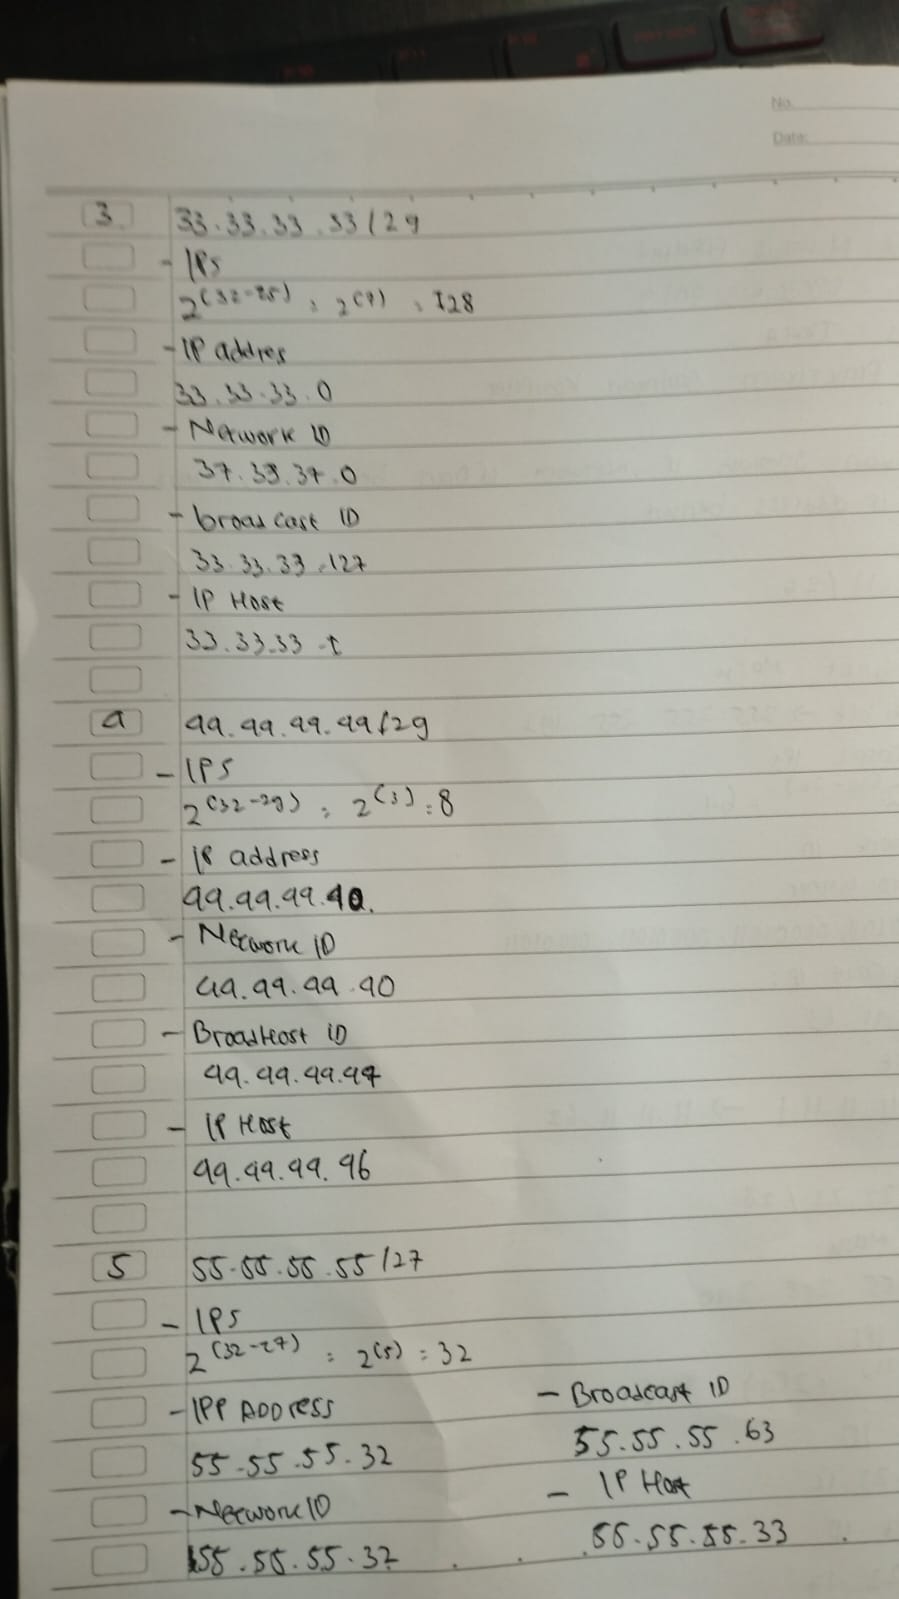 No.
Date:
3 33.33.33.33/29
- IPs
2^(32-25) : 2^(7) : 128
- IP addres
33.33.33.0
- Network ID
37.33.37.0
- broadcast ID
33.33.33.127
- IP Host
33.33.33
4 44.44.44.44/29
- IPS
2^(32-29) : 2^(3) : 8
- IP address
44.44.44.40.
- Network ID
44.44.44.40
- BroadHost ID
44.44.44.47
- IP Host
44.44.44.46
5 55.55.55.55/27
- IPS
2^(32-27) : 2^(5) : 32
- IPP ADDress
55.55.55.32
- Network ID
55.55.55.32
- Broadcast ID
55.55.55.63
- IP Host
55.55.55.33